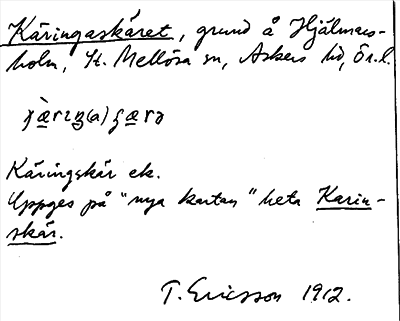 Käringaskäret, grund å Hjälmars-
holm, St. Mellösa sn, Askers hd, Ör. l.
Käringskär ek.
Uppges på "nya kartan" heta Karin-
skär.
T. Ericsson 1912.